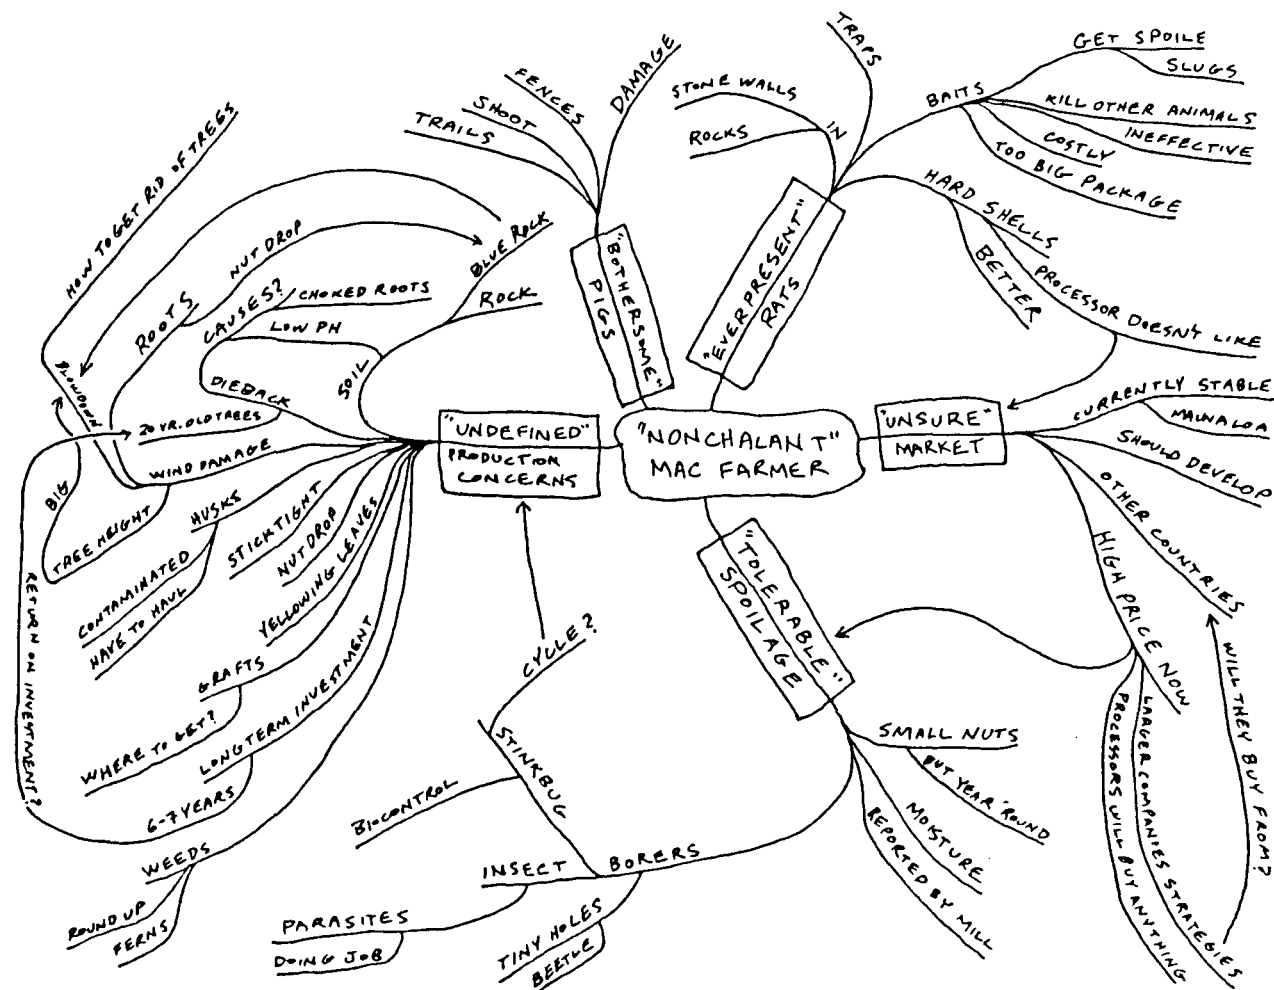 "NONCHALANT"
MAC FARMER
"BOTHERSOME"
PIGS
TRAILS
SHOOT
FENCES
DAMAGE
"EVERPRESENT"
RATS
IN
STONE WALLS
ROCKS
TRAPS
BAITS
GET SPOILE
SLUGS
KILL OTHER ANIMALS
INEFFECTIVE
COSTLY
TOO BIG PACKAGE
HARD SHELLS
BETTER
PROCESSOR DOESN'T LIKE
"UNSURE"
MARKET
CURRENTLY STABLE
MAUNALOA
SHOULD DEVELOP
OTHER COUNTRIES
HIGH PRICE NOW
LARGER COMPANIES STRATEGIES
PROCESSORS WILL BUY ANYTHING
WILL THEY BUY FROM?
"TOLERABLE"
SPOILAGE
SMALL NUTS
BUT YEAR 'ROUND
MOISTURE
REPORTED BY MILL
BORERS
TINY HOLES
BEETLE
INSECT
PARASITES
DOING JOB
STINKBUG
BIOCONTROL
CYCLE?
"UNDEFINED"
PRODUCTION
CONCERNS
SOIL
ROCK
BLUE ROCK
LOW PH
DIEBACK
CAUSES?
CHOKED ROOTS
20 YR. OLD TREES
WIND DAMAGE
ROOTS
NUT DROP
BLOWDOWN
HOW TO GET RID OF TREES
TREE HEIGHT
BIG
HUSKS
CONTAMINATED
HAVE TO HAUL
STICKTIGHT
NUT DROP
YELLOWING LEAVES
GRAFTS
WHERE TO GET?
LONG TERM INVESTMENT
6-7 YEARS
RETURN ON INVESTMENT?
WEEDS
ROUND UP
FERNS